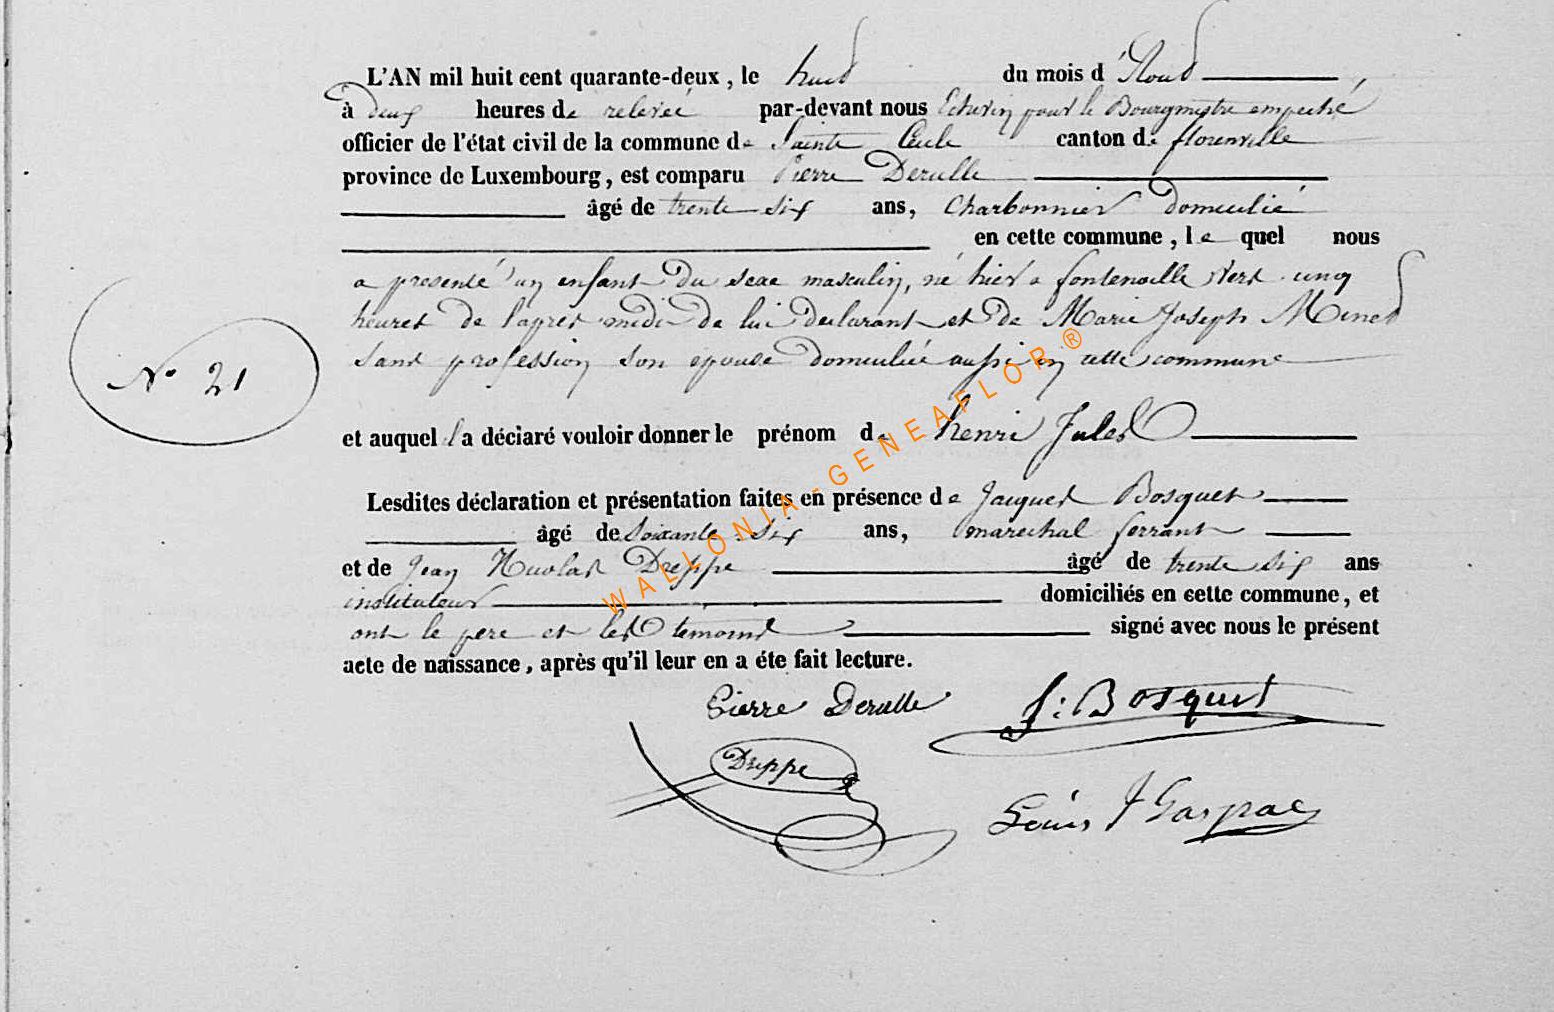 L'AN mil huit cent quarante-deux, le huit du mois d'Aout
à deux heures de relevée par-devant nous Echevin pour le Bourgmestre empeché
officier de l'état civil de la commune de Sainte Cecile canton de florenville
province de Luxembourg, est comparu Pierre Derulle
âgé de trente six ans, charbonnier domicilié
en cette commune, le quel nous
a presenté un enfant du sexe masculin, né hier a fontenoille vers cinq
heures de l'apres midi de lui declarant et de Marie Joseph
sans profession son epouse domiciliée aussi en cette commune
N° 21
et auquel il a déclaré vouloir donner le prénom de henri Jules
Lesdites déclaration et présentation faites en présence de Jacques Bosquet
âgé de soixante six ans, marechal ferrant
et de Jean Nicolas Dreppe âgé de trente six ans
instituteur domiciliés en cette commune, et
ont le pere et les temoins signé avec nous le présent
acte de naissance, après qu'il leur en a éte fait lecture.
Pierre Derulle J: Bosquet
Dreppe
Louis J Gaspar
WALLONIA-GENEAFLOR ®